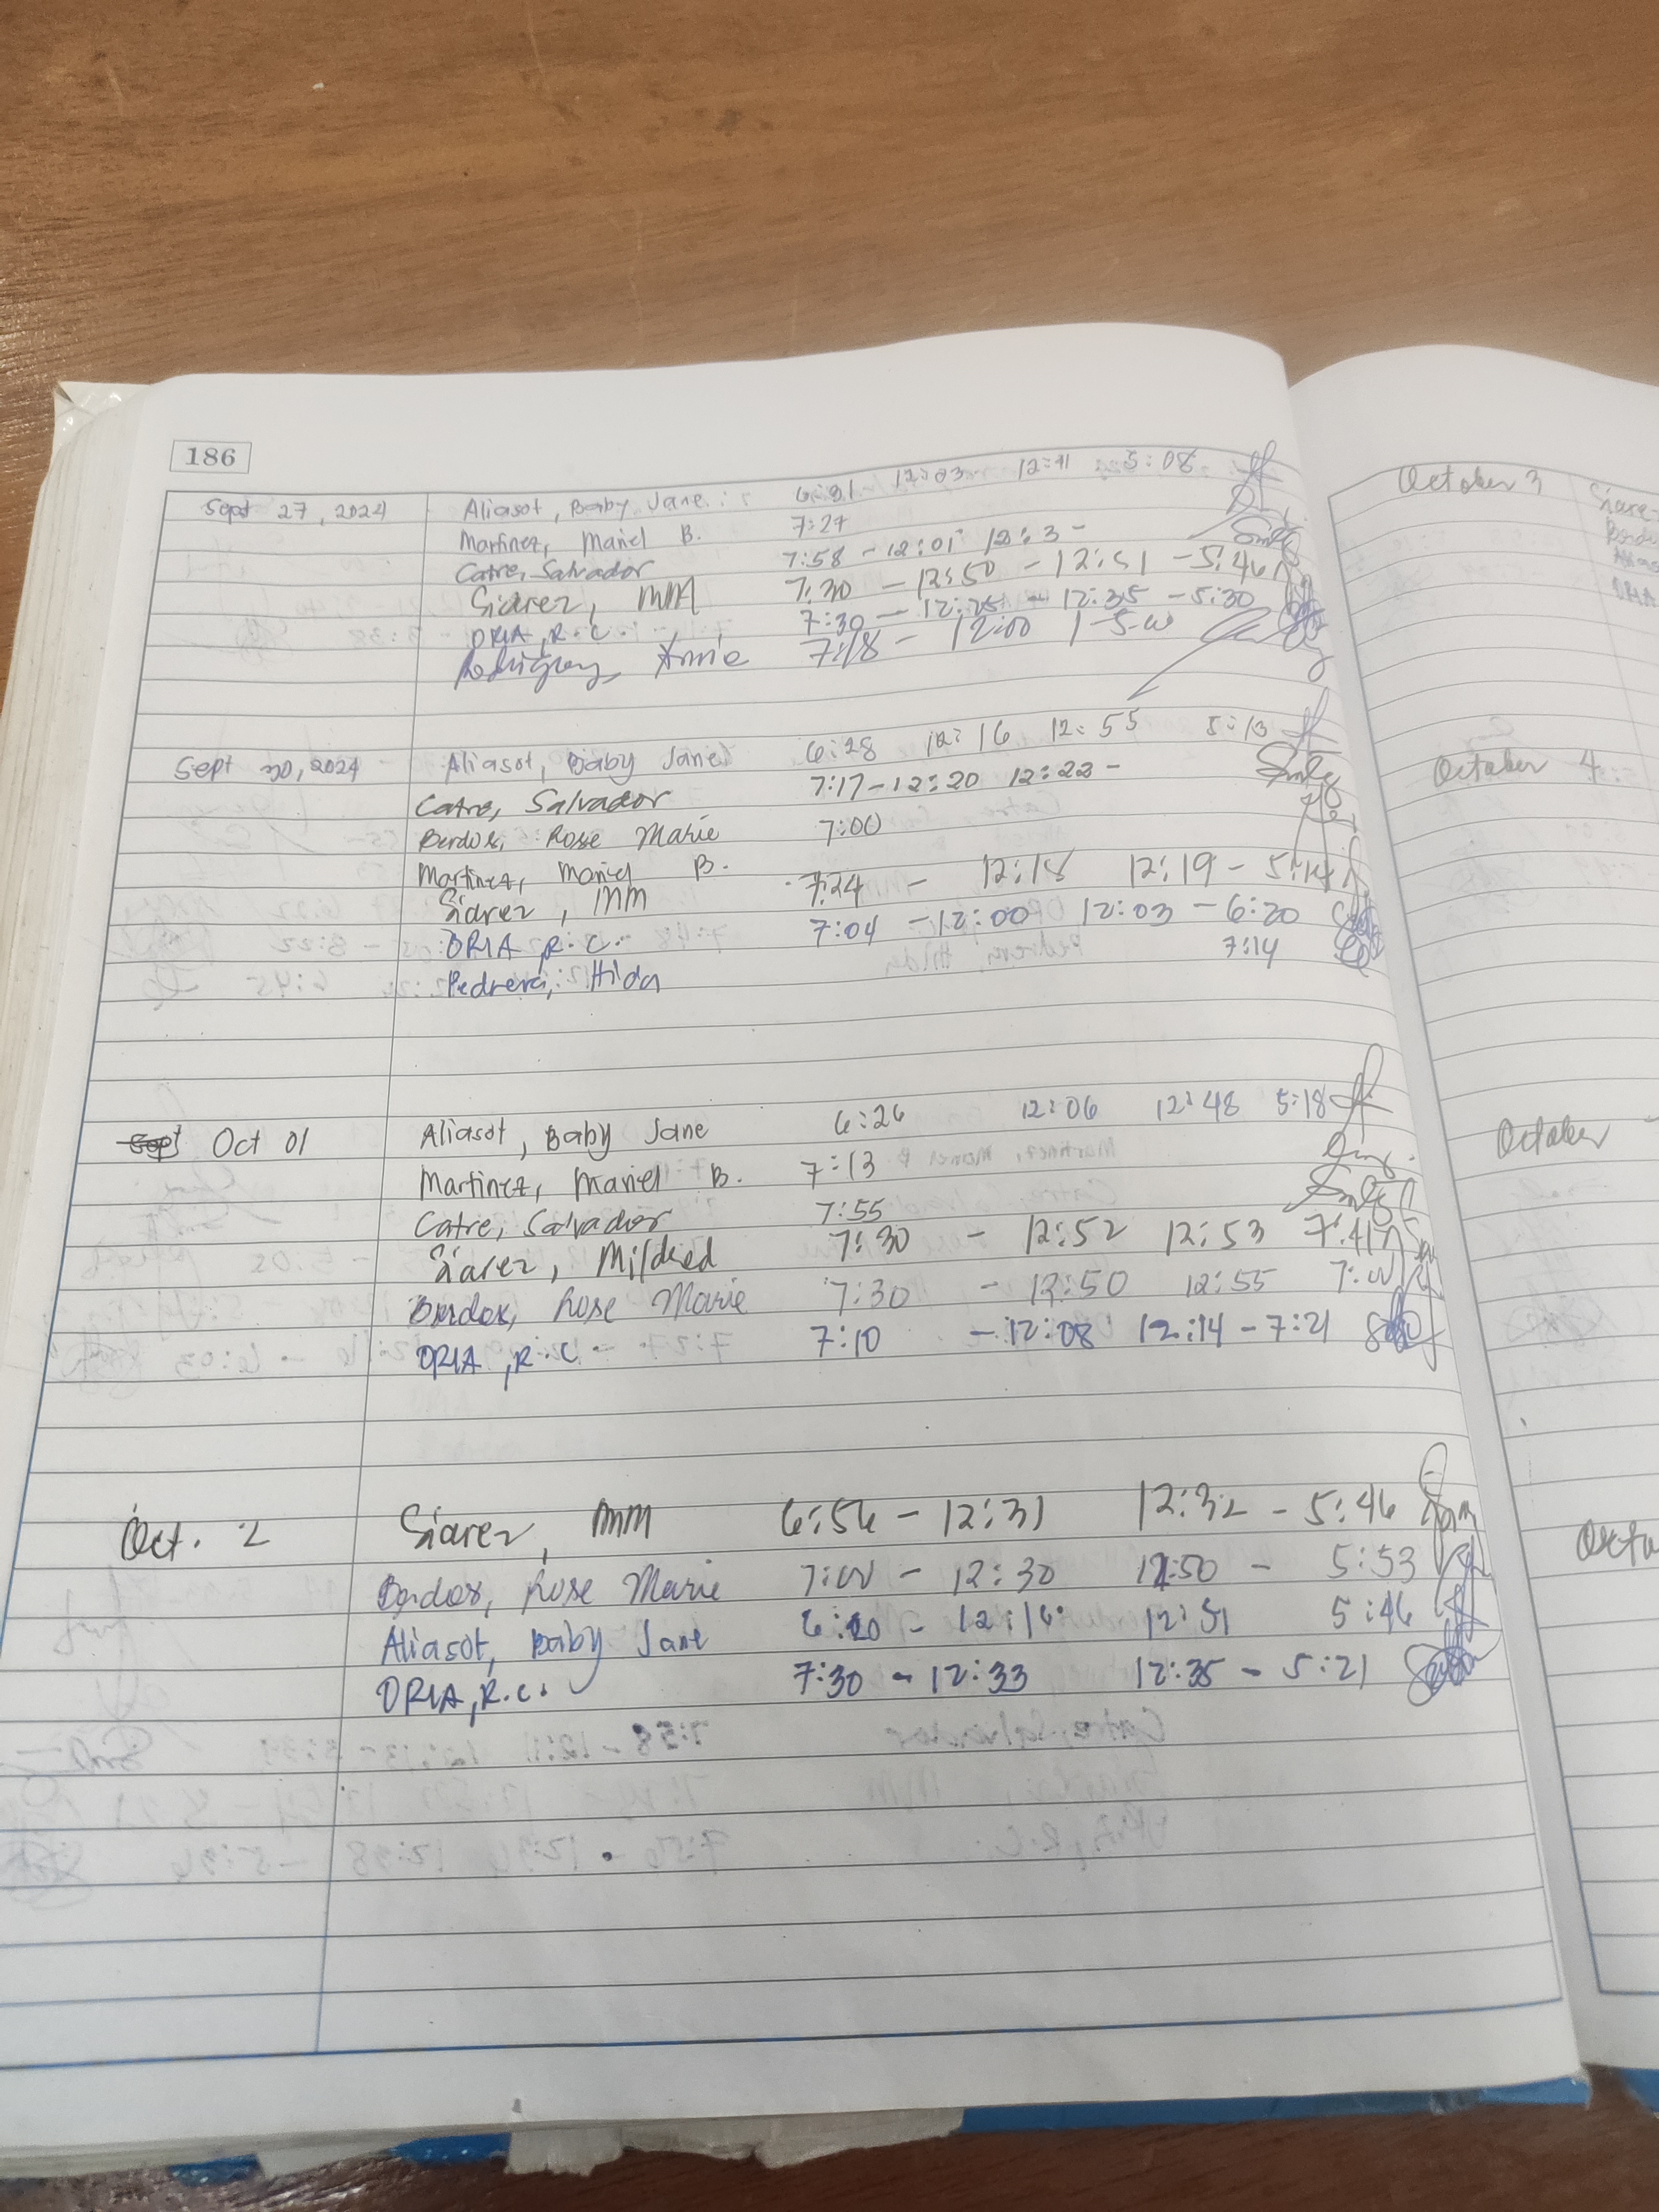 186
Sept 27, 2024 Aliasot, Baby Jane 6:31 12:03 12:41 5:08
Martinez, Mariel B. 7:27
Catre, Salvador 7:58 - 12:01 12:3 -
Siarez, MM 7:30 - 12:50 - 12:51 - 5:46
ORIA, R.C. 7:30 - 12:25 - 12:35 - 5:30
Annie 7:18 - 12:00 1 - 5:00
Sept 30, 2024 Aliasot, Baby Jane 6:28 12:16 12:55 5:13
Catre, Salvador 7:17 - 12:20 12:22 -
Berdos, Rose Marie 7:00
Martinez, Mariel B.
Siarez, MM 7:24 - 12:18 12:19 - 5:14
ORIA, R.C. 7:04 - 12:00 12:03 - 6:20
Pedrera, Hilda 7:14
Oct 01 Aliasot, Baby Jane 6:26 12:06 12:48 5:18
Martinez, Mariel B. 7:13
Catre, Salvador 7:55
Siarez, Mildred 7:30 - 12:52 12:53 7:41
Berdos, Rose Marie 7:30 - 12:50 12:55 7:00
ORIA, R.C. 7:10 - 12:08 12:14 - 7:21
Oct. 2 Siarez, MM 6:56 - 12:31 12:32 - 5:46
Berdos, Rose Marie 7:00 - 12:30 12:50 - 5:53
Aliasot, Baby Jane 12:51 5:46
ORIA, R.C. 7:30 - 12:33 12:35 - 5:21
October 3
October 4
October